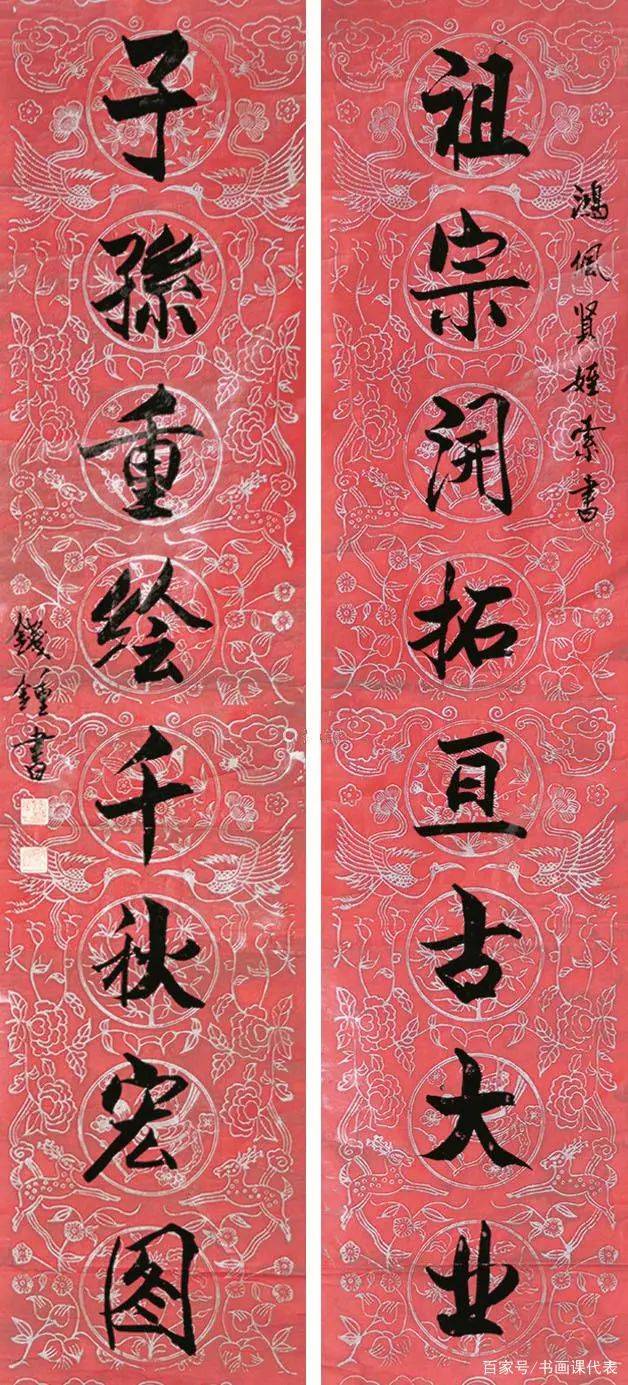 祖宗开拓亘古大业
鸿佩贤姪索书
子孫重绘千秋宏图
錢鍾書
百家号/书画课代表